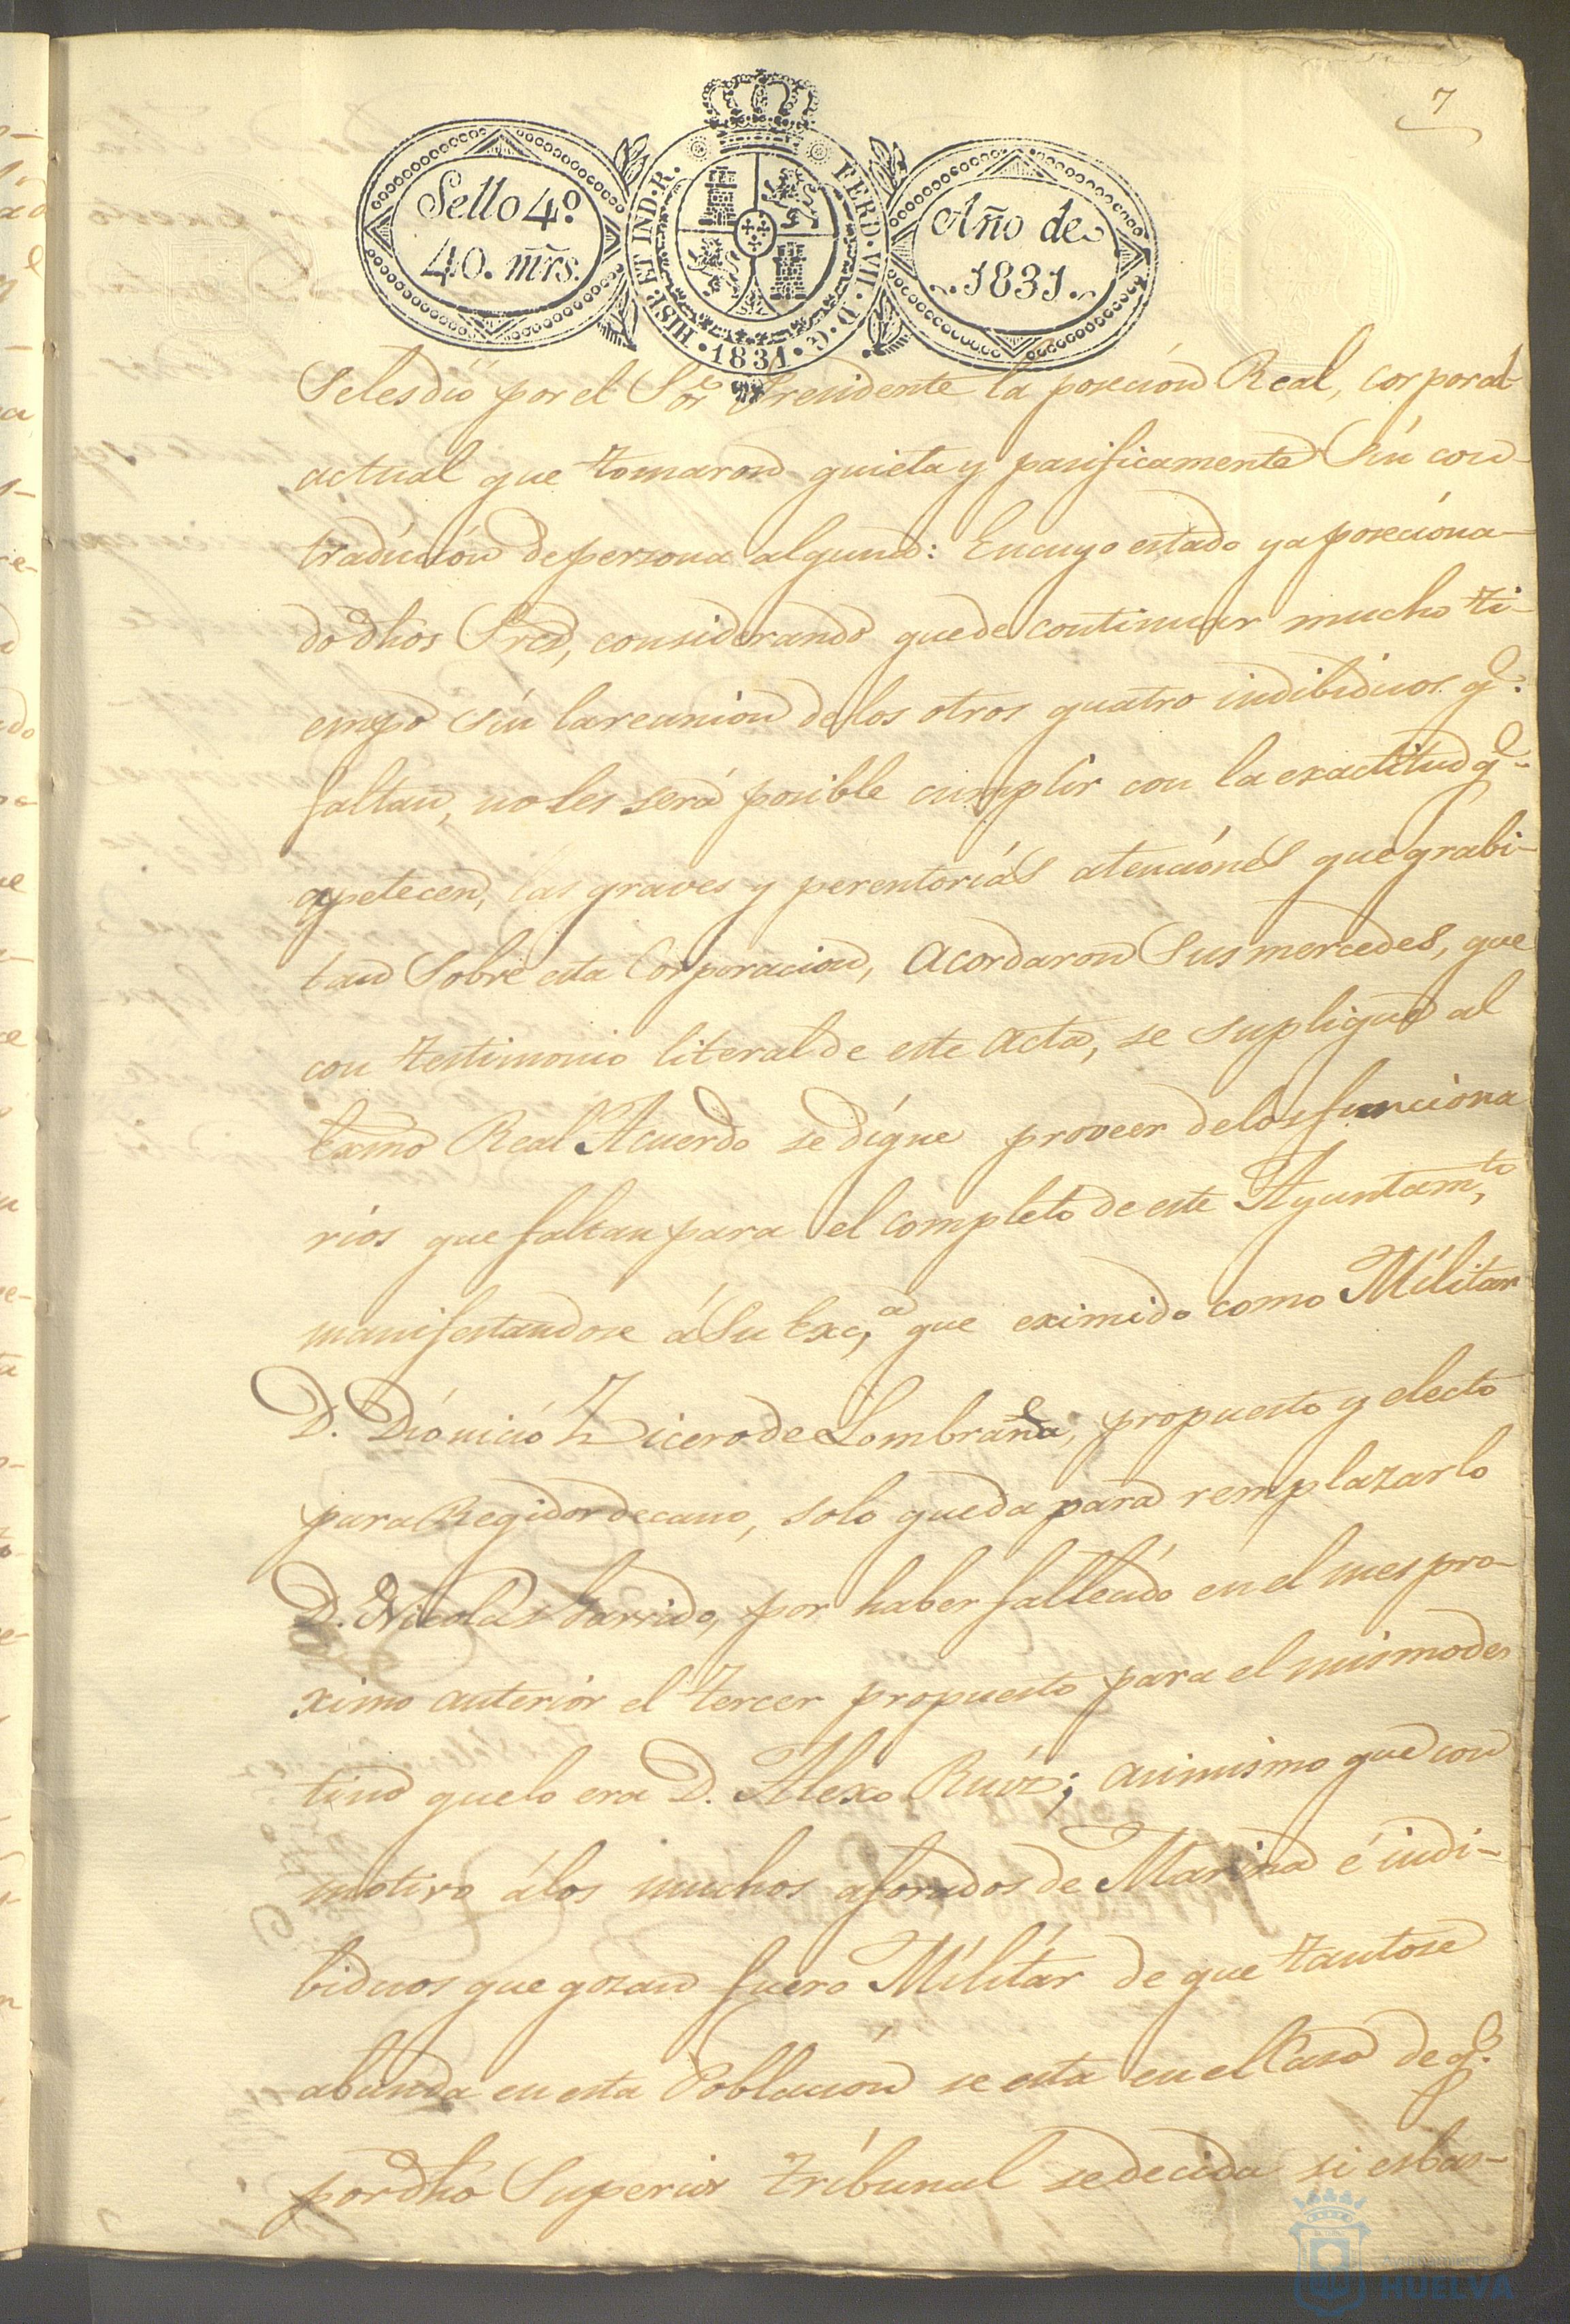 7
Sello 4º
40. mrs.
HISP. ET IND. R. FERD. VII. D. G. 1831
Año de
1831.
Selesdió por el Sor Presidente la poseción Real, corporal
actual que tomaron quieta y pasificamente sin con-
tradición depersona alguna: En cuyo estado ya poseciona-
do dhos Sres, considerando que de continuar mucho ti-
empo sin la reunion de los otros quatro indibiduos q.e
faltan, no les será posible cumplir con la exactitud q.e
apetecen, las graves y perentorias atenciones que grabi-
tan sobre esta Corporacion, acordaron Sus mercedes, que
con testimonio literal de este acta, se suplique al
Exmo Real Acuerdo se digne proveer de los funciona
rios que faltan para el completo de este Ayuntam.to,
manifestandose á Su Exc.a, que eximido como Militar
D. Dionicio Zicero de Lombraña, propuesto y electo
para Regidor decano, solo queda para remplazarlo
D. Nicolas Garrido, por haber fallecido en el mes pro-
ximo anterior el tercer propuesto para el mismo des
tino que lo era D. Alexo Ruiz; asimismo que con
motivo á los muchos aforados de Marina é indi-
biduos que gozan fuero Militar de que tanto se
abunda en esta Poblacion se esta en el Caso de q.e
por dho Superior tribunal se decida si es bas-
Ayuntamiento
HUELVA